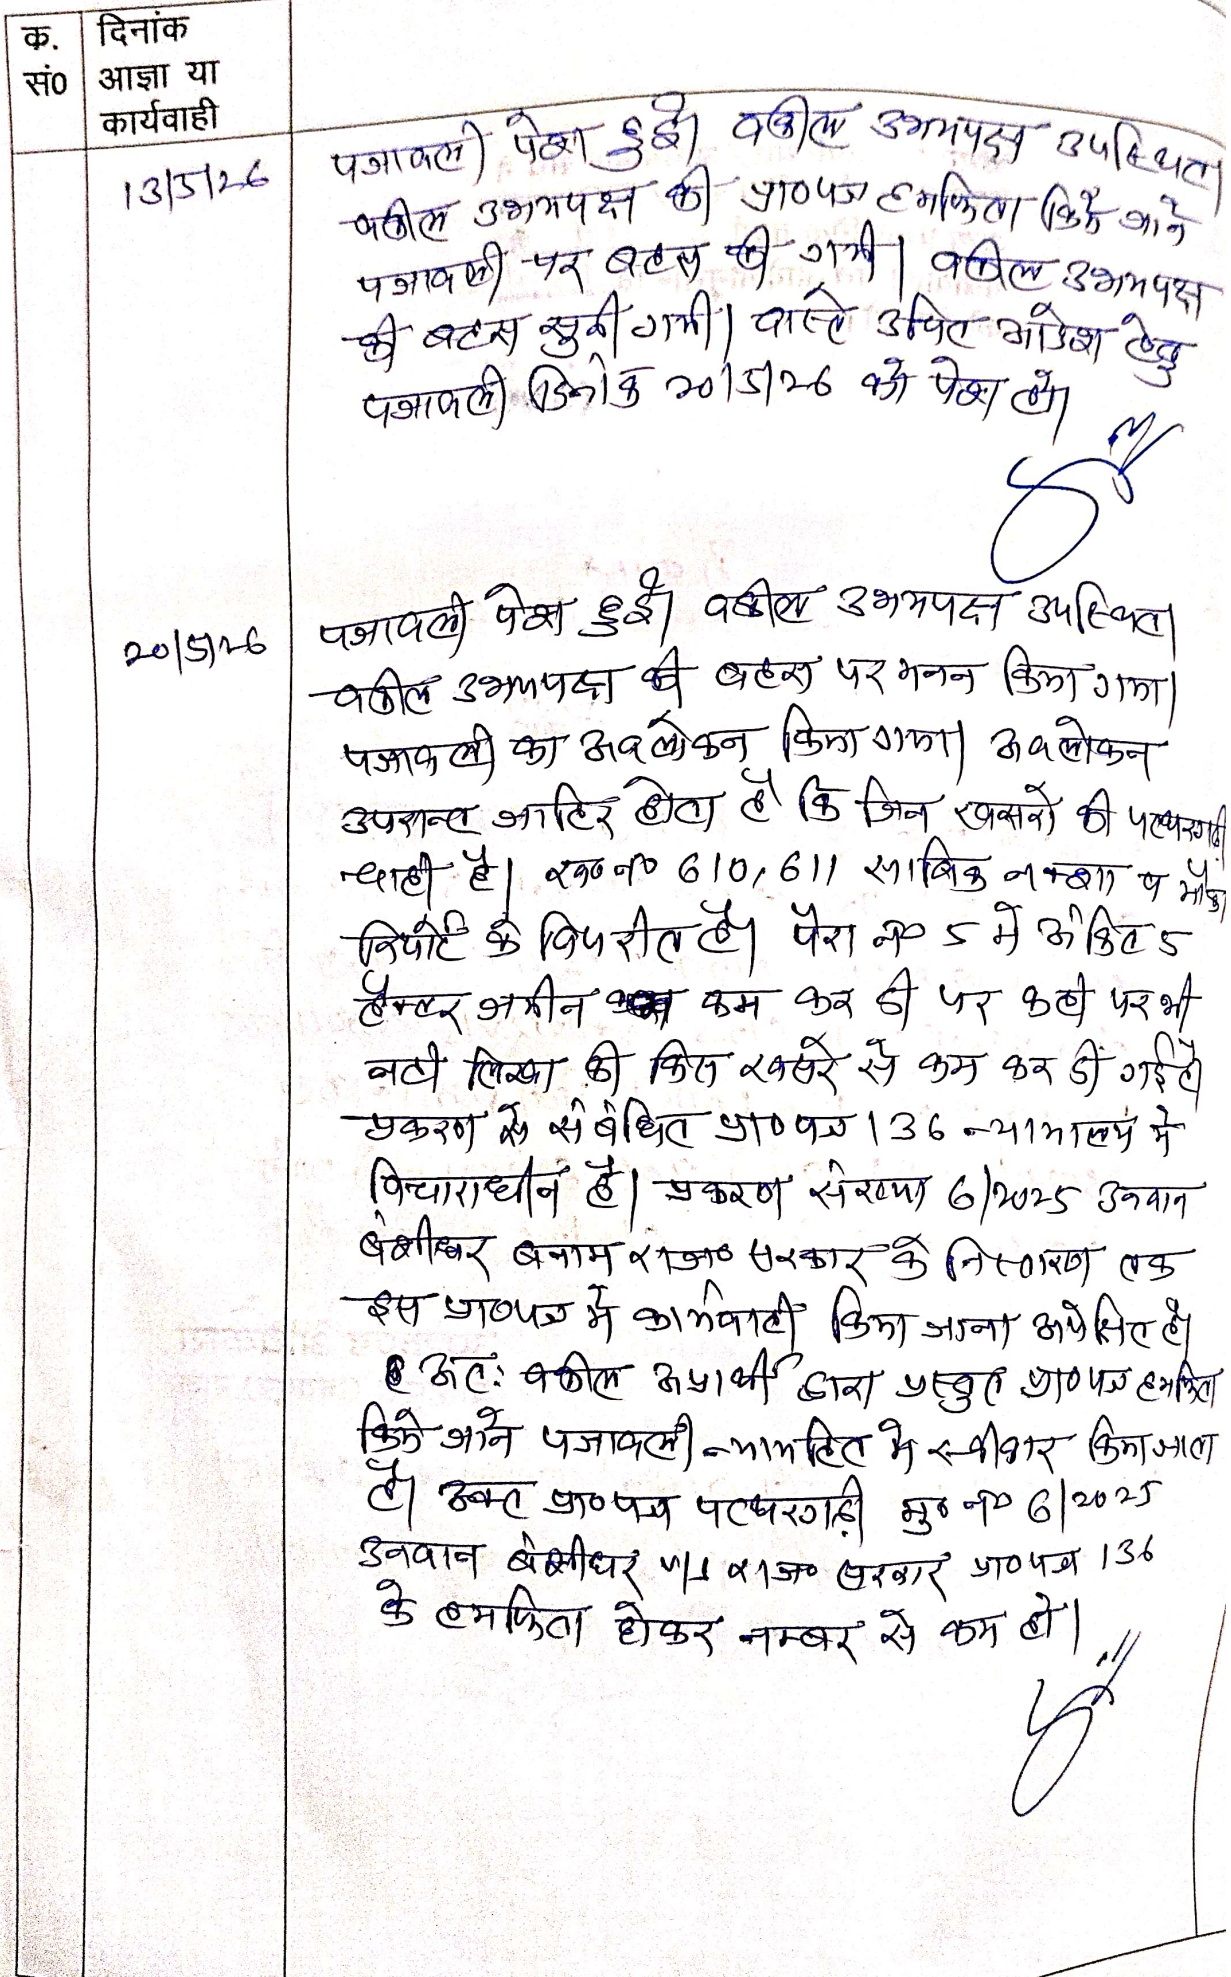 क्र. सं0
दिनांक
आज्ञा या
कार्यवाही
13/5/26
पत्रावली पेश हुई। वकील उभयपक्ष उपस्थित।
वकील उभयपक्ष की प्रा०पत्र हमफिता किये जाने
पत्रावली पर बहस की गयी। वकील उभयपक्ष
की बहस सुनी गयी। वास्ते उचित आदेश हेतु
पत्रावली दिनांक 20/5/26 को पेश हो।
20/5/26
पत्रावली पेश हुई। वकील उभयपक्ष उपस्थित।
वकील उभयपक्ष की बहस पर मनन किया गया।
पत्रावली का अवलोकन किया गया। अवलोकन
उपरान्त जाहिर होता है कि जिन खसरों की पत्थरगढ़ी
चाही है। ख०न० 610, 611 साबिक नक्शा व मौका
रिपोर्ट के विपरीत है। पैरा न० 5 में अंकित 5
हैक्टर जमीन कम कर दी पर कही पर भी
नही लिखा की किस खसरे से कम कर दी गई है
प्रकरण से संबंधित प्रा०पत्र 136 न्यायालय में
विचाराधीन है। प्रकरण संख्या 6/2025 उनवान
बंशीधर बनाम राज० सरकार के निस्तारण तक
इस प्रा०पत्र में कार्यवाही किया जाना अपेक्षित है।
अत: वकील अप्रार्थी द्वारा प्रस्तुत प्रा०पत्र हमफिता
किये जाने पत्रावली न्यायहित में स्वीकार किया जाता
है। उक्त प्रा०पत्र पत्थरगढ़ी मु० न० 6/2025
उनवान बंशीधर v/s राज० सरकार प्रा०पत्र 136
के हमफिता होकर नम्बर से कम हो।